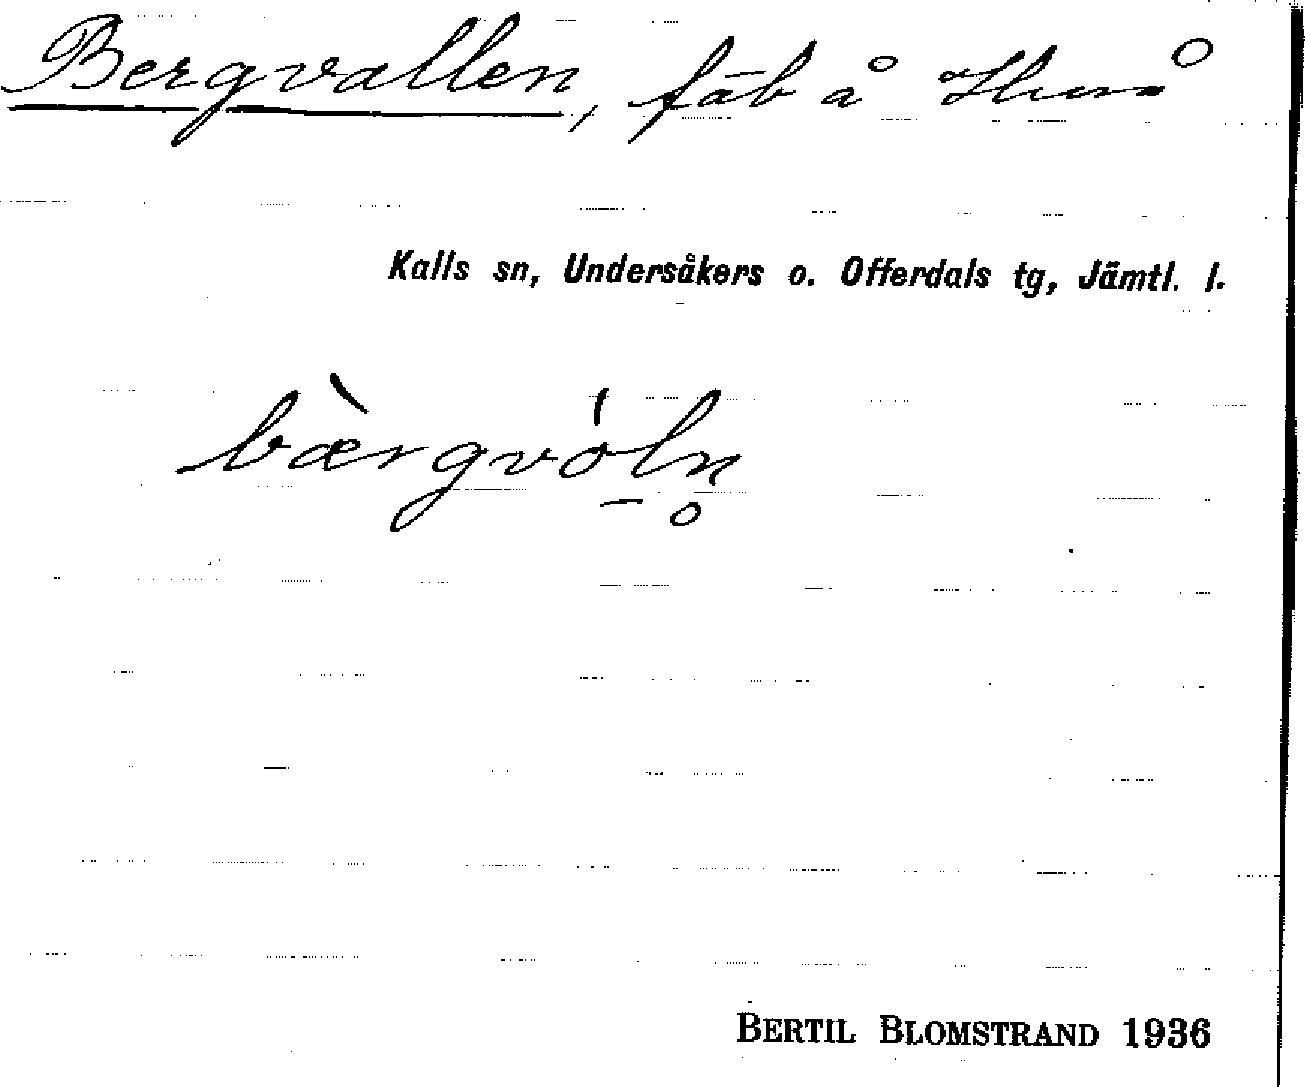 Bergvallen, fäb å Huså
Kalls sn, Undersåkers o. Offerdals tg, Jämtl. l.
bæ̀rgvö́ln̥
BERTIL BLOMSTRAND 1936